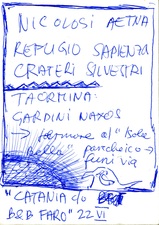 NICOLOSI AETNA
REFUGIO SAPIENZA
CRATERI SILVESTRI
TAORMINA:
GIARDINI NAXOS
→ fermare al "Isola
bella parcheggio →
funivia
"CATANIA do
B&B FARO" 22 VI